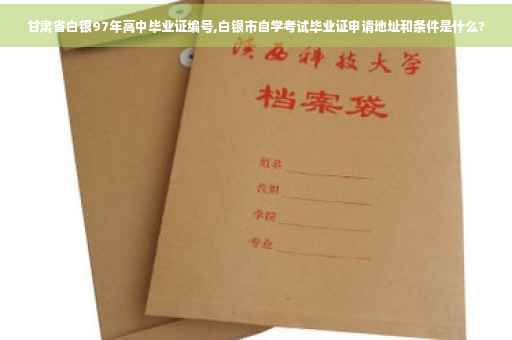 甘肃省白银97年高中毕业证编号,白银市自学考试毕业证申请地址和条件是什么?
陕西科技大学
档案袋
姓名
学院
专业